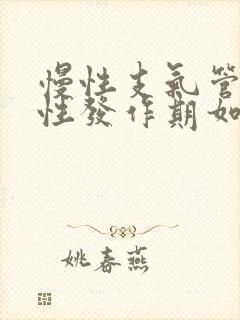 慢性支氣管
性發作期如
姚春燕